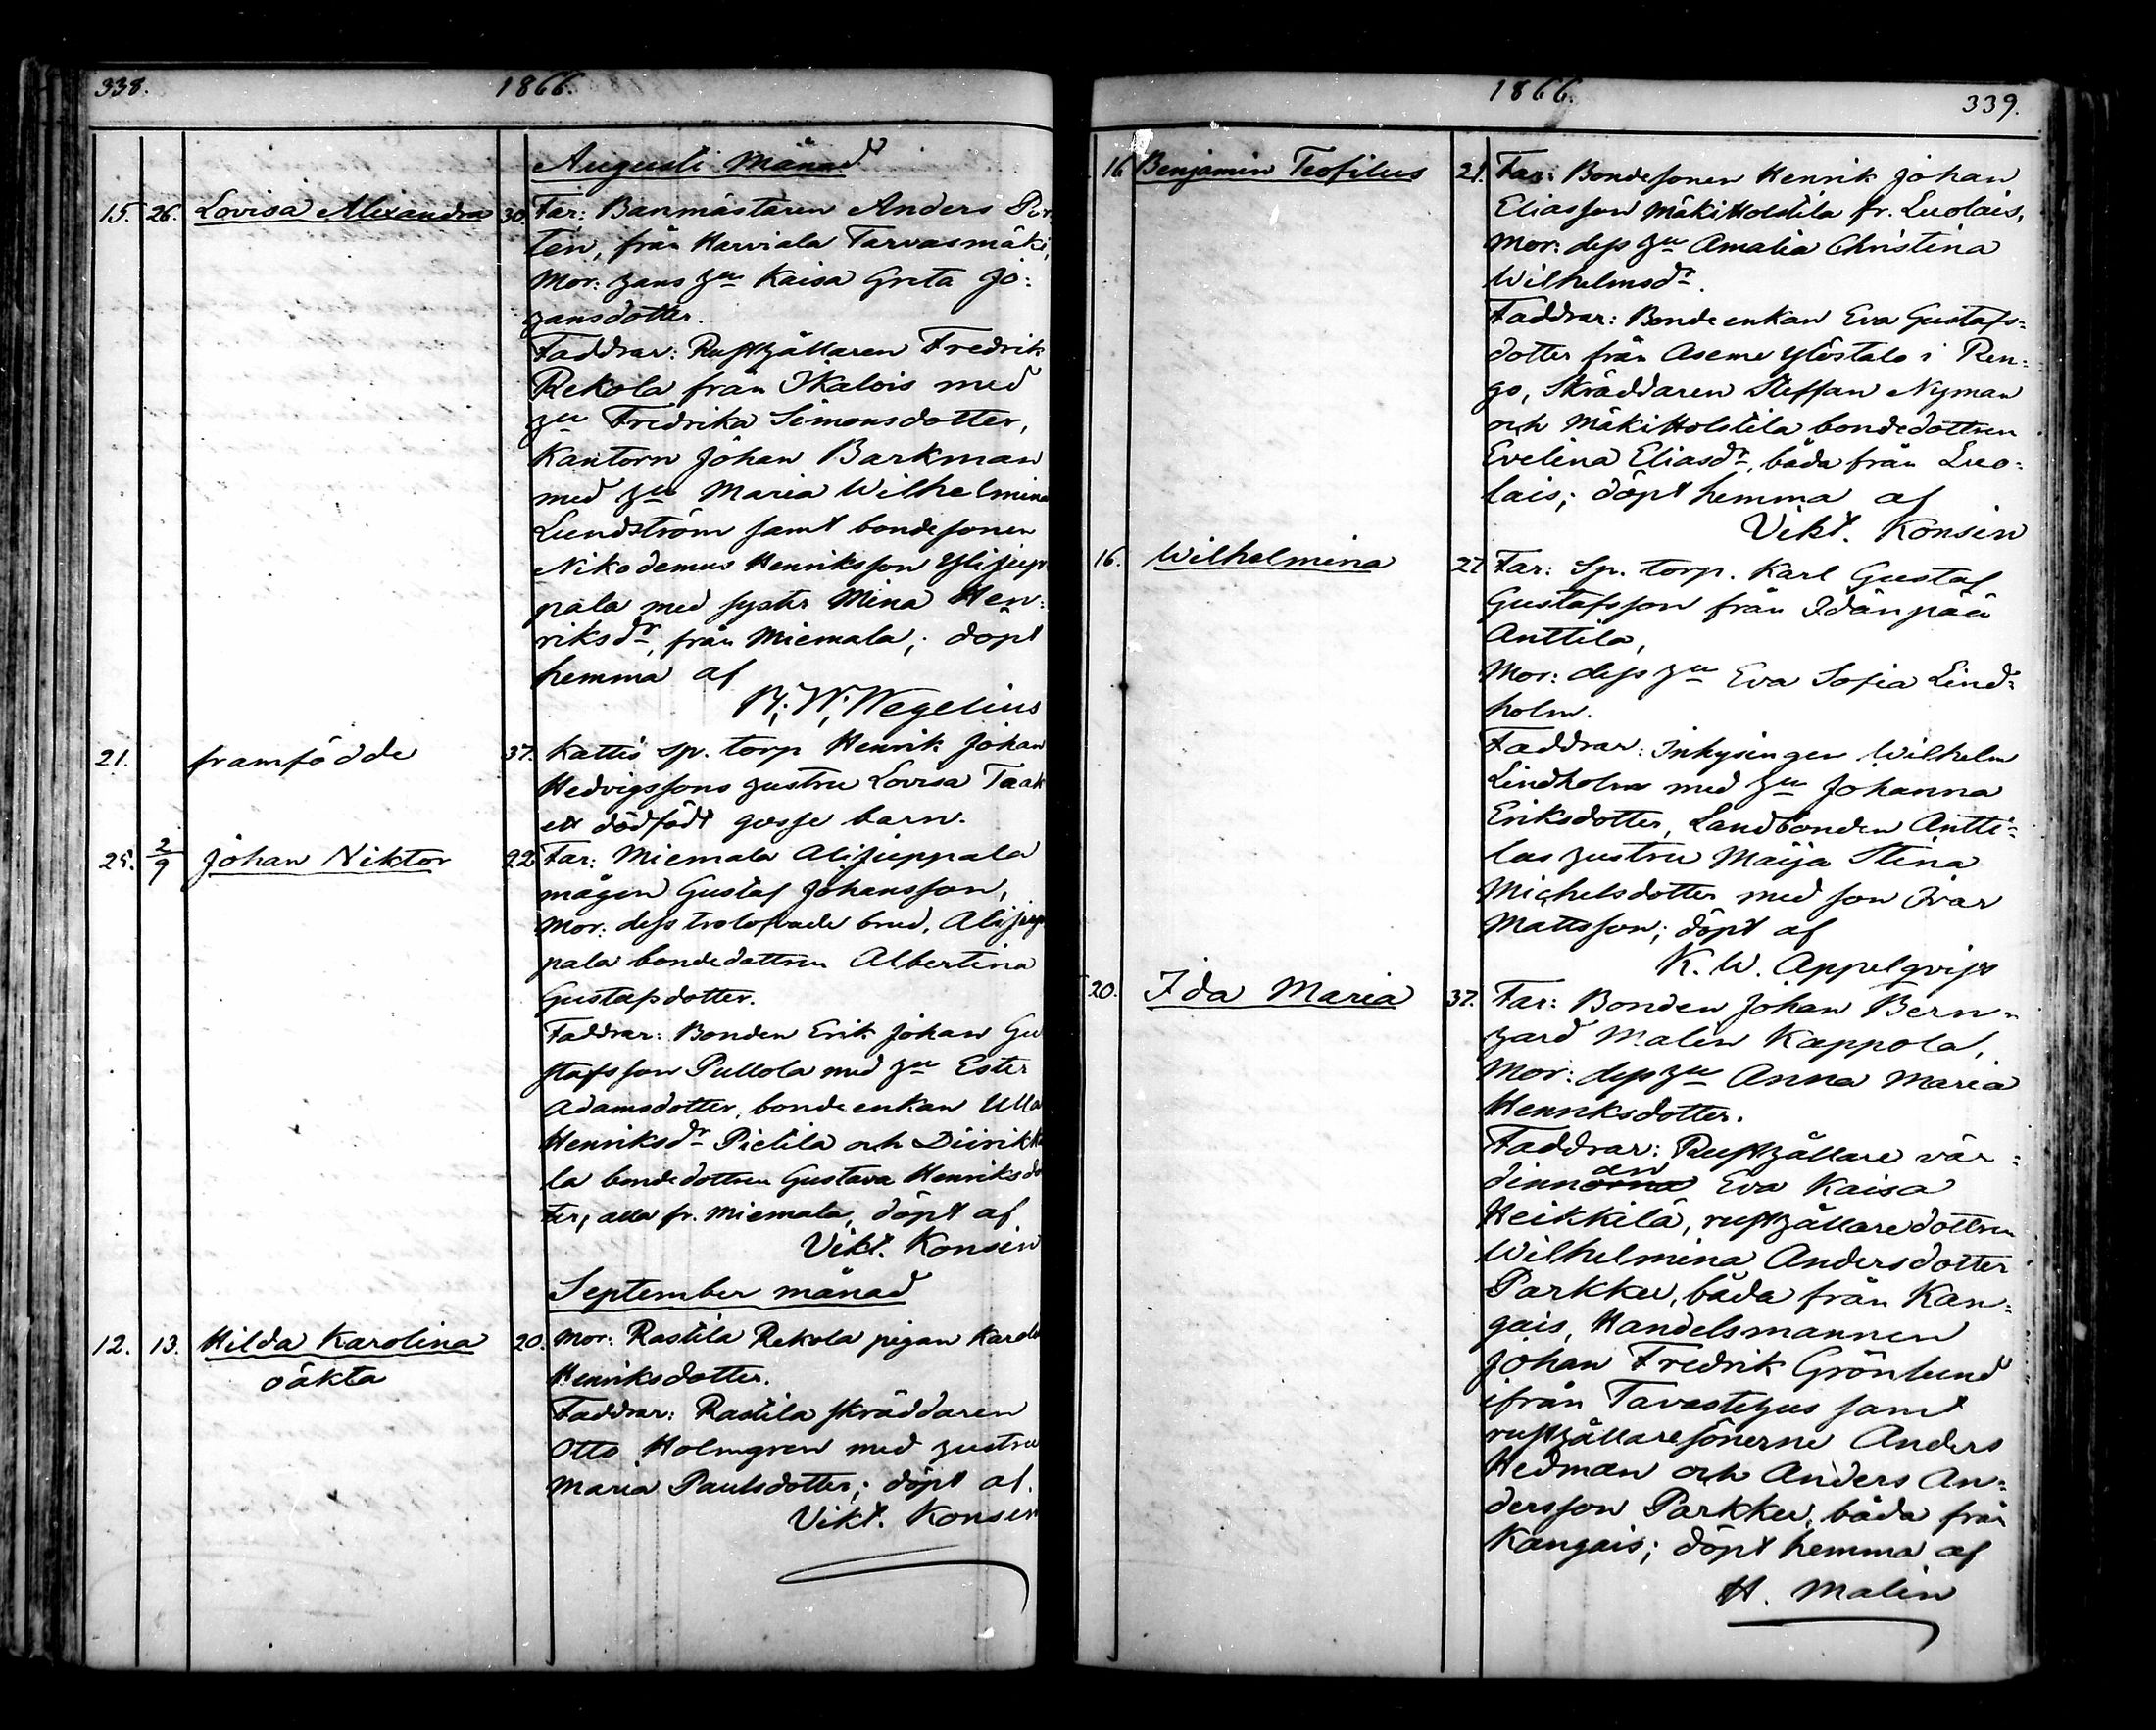 338. 1866.
Augusti Månad
15. 26. Lovisa Alexandra 30. Far: Banmästaren Anders
tén, från Harviala Tarvasmäki,
Mor: hans hu Kaisa Greta Jo:
hansdotter.
Faddrar: Rusthållaren Fredrik
Rekola från Ikalois med
hu Fredrika Simonsdotter,
Kantorn Johan Barkman
med hu Maria Wilhelmina
Lundström samt bondesonen
Nikodemus Henriksson Ylijup
pala med syster Mina Hen:
riksdr, från Miemala; döpt
hemma af
R. W. Wegelius
21. framfödde 37. Kattis sp. torp Henrik Johan
Hedvigssons hustru Lovisa Taak
ett dödfödt gosse barn.
25. 2/9 Johan Viktor 22 Far: Miemala Alijuppala
mågen Gustaf Johansson,
Mor: dess trolofvade brud, Alijup
pala bondedottren Albertina
Gustafsdotter.
Faddrar: Bonden Erik Johan Gu
stafsson Pullola med hu Ester
Adamsdotter, bondeenkan Ulla
Henriksdr Pietilä och Diirikk
la bondedottren Gustava Henriksdo
ter, alla fr. Miemala, döpt af
Vikt. Konsin
September månad
12. 13. Hilda Karolina 20. Mor: Rastila Rekola pigan Karol
oäkta Henriksdotter.
Faddrar: Rastila skräddaren
Otto Holmgren med hustru
Maria Paulsdotter; döpt af.
Vikt. Konsin
1866. 339.
16 Benjamin Teofilus 21. Far: Bondesonen Henrik Johan
Eliasson MäkiHolstila fr. Luolais,
Mor: dess hu Amalia Christina
Wilhelmsdr.
Faddrar: Bondeenkan Eva Gustafs:
dotter från Aseme Ylöstalo i Ren:
go, Skräddaren Steffan Nyman
och MäkiHolstila bondedottren
Evelina Eliasdr, båda från Luo:
lais; döpt hemma af
Vikt. Konsin
16. Wilhelmina 27 Far: Sp. torp. Karl Gustaf
Gustafsson från Idänpää
Anttila,
Mor: dess hu Eva Sofia Lind:
holm.
Faddrar: Inhysingen Wilhelm
Lindholm med hu Johanna
Eriksdotter, Landbonden Antti:
las hustru Maija Stina
Michelsdotter med son Ivar
Mattsson; döpt af
K. W. Appelqvist
20. Ida Maria 37. Far: Bonden Johan Bern:
hard Malin Kappola,
Mor: dess hu Anna Maria
Henriksdotter.
Faddrar: Rusthållare vär:
an
dinnorna Eva Kaisa
Heikkilä, rusthållaredottren
Wilhelmina Andersdotter
Parkku, båda från Kan:
gais, Handelsmannen
Johan Fredrik Grönlund
ifrån Tavastehus samt
rusthållaresönerne Anders
Hedman och Anders An:
dersson Parkku, båda från
Kangais; döpt hemma af
H. Malin